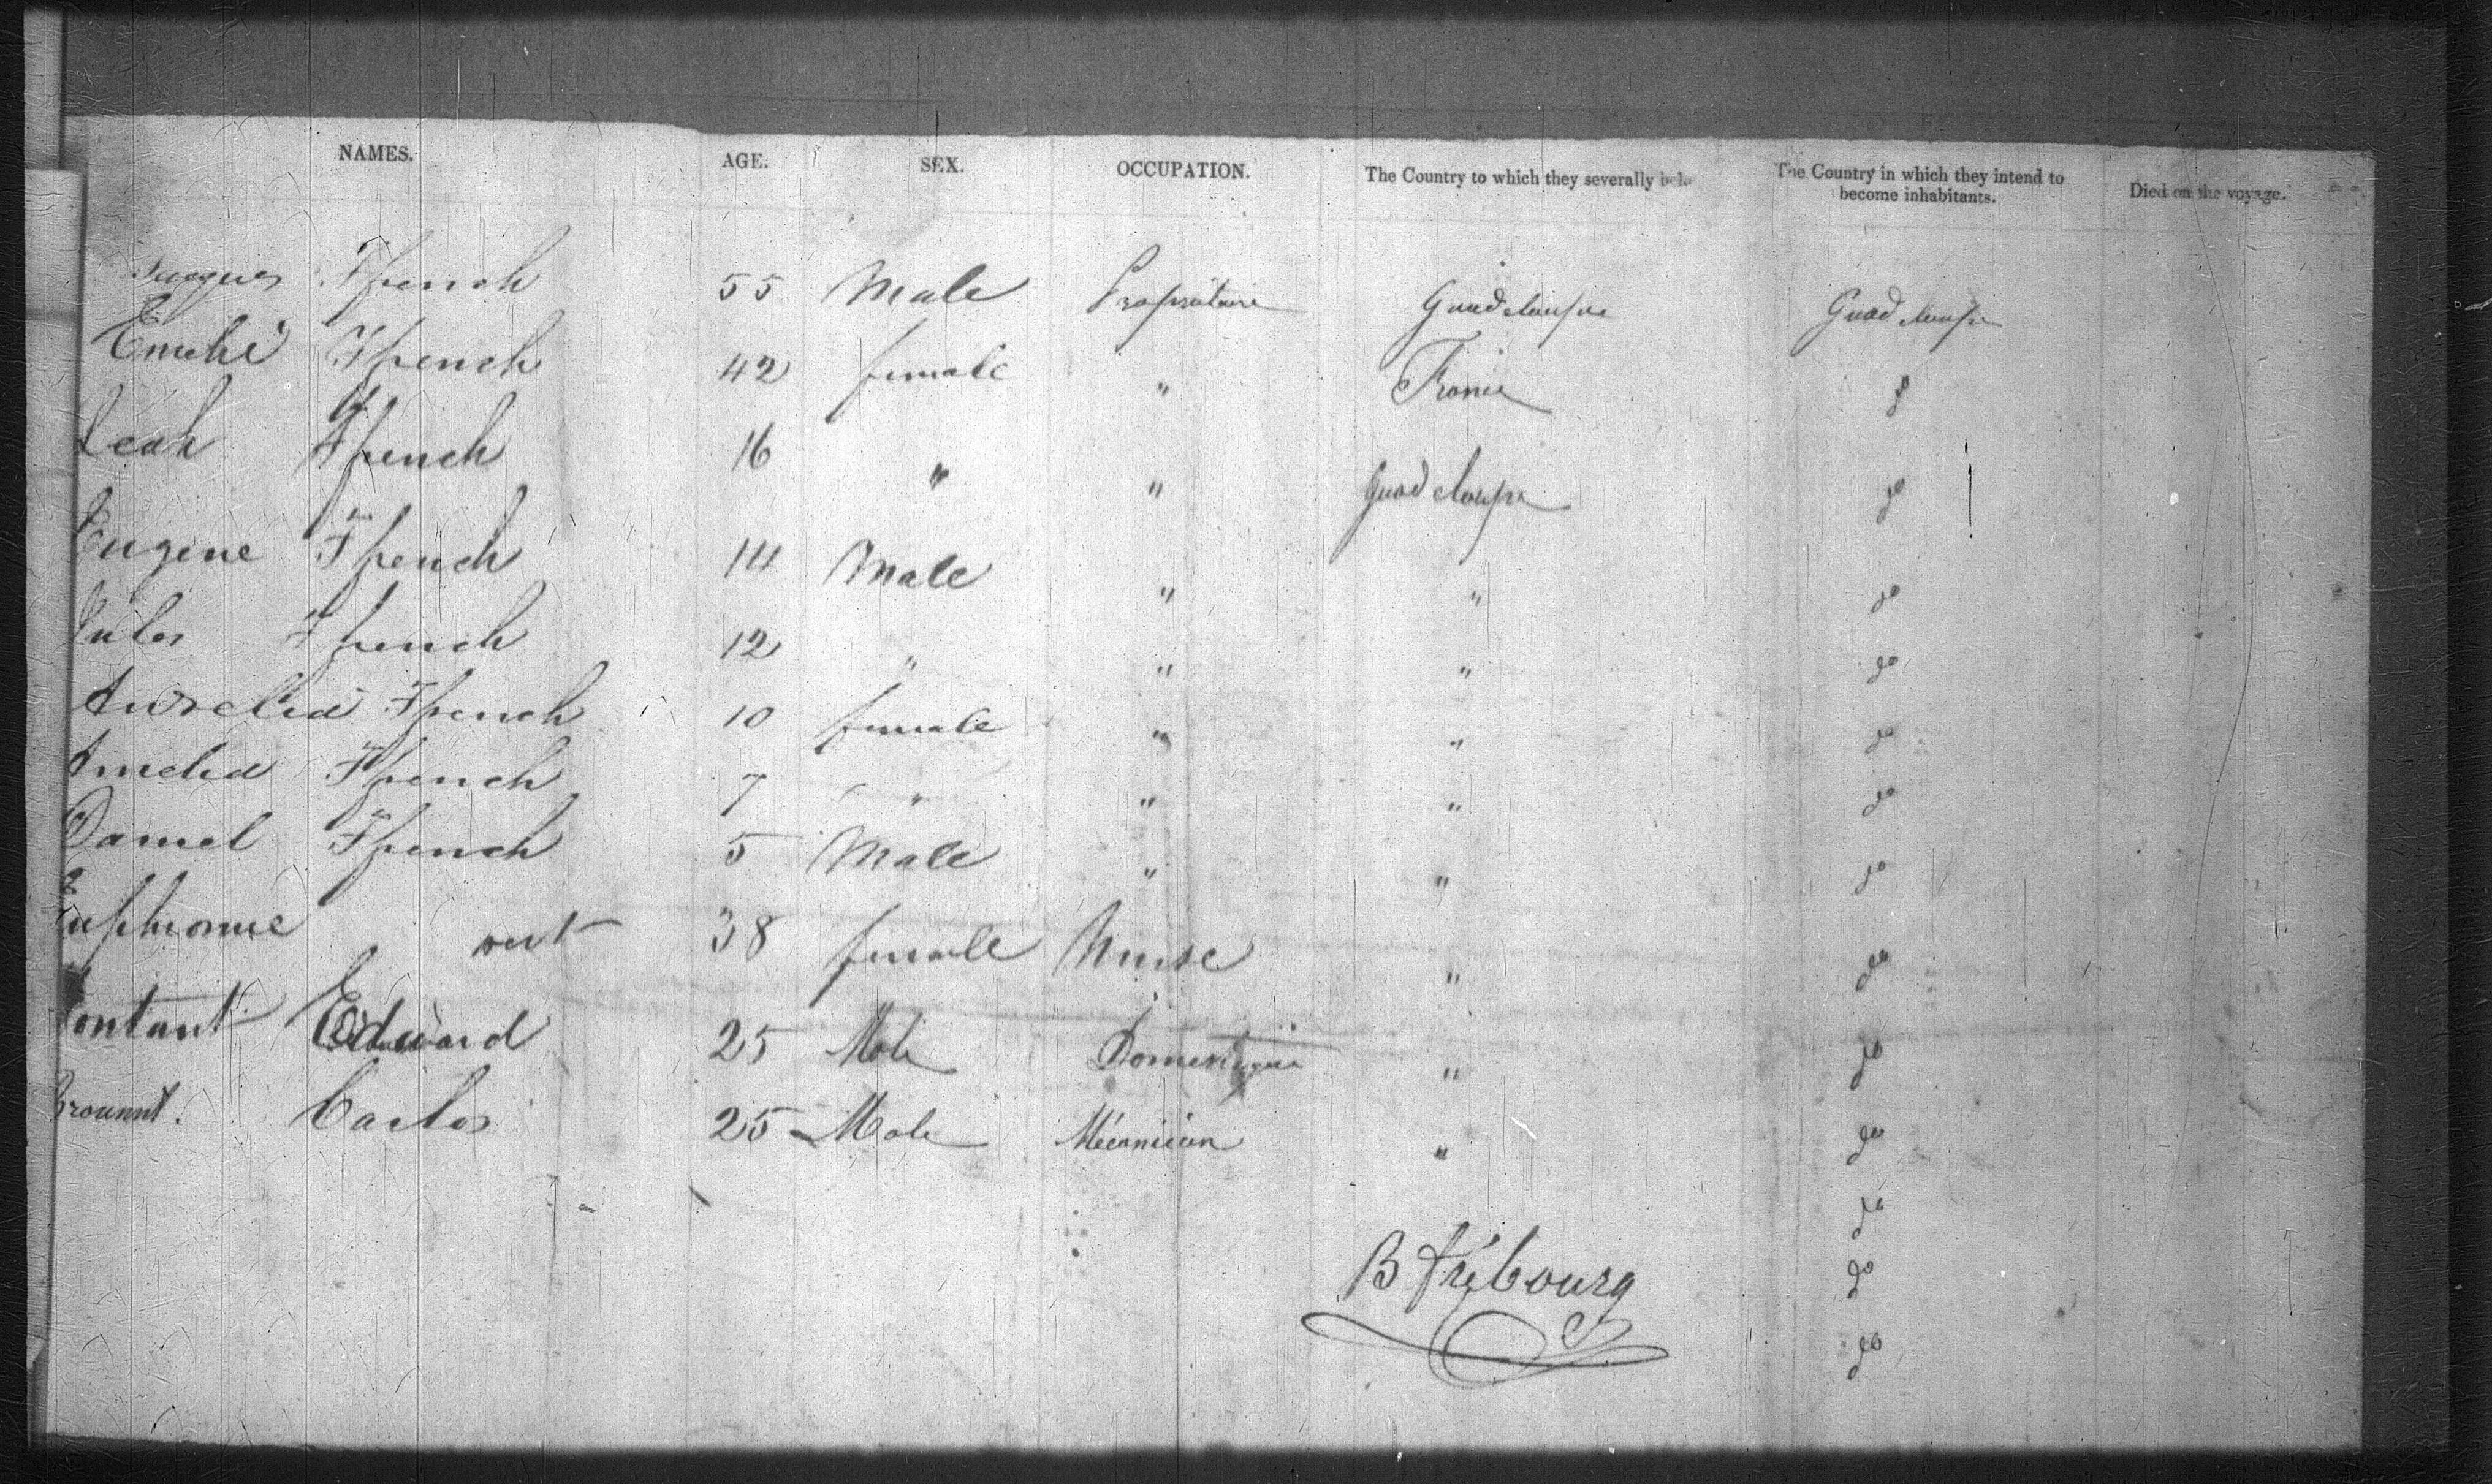 NAMES. AGE. SEX. OCCUPATION. The Country to which they severally The Country in which they intend to become inhabitants. Died on the voyage.
Jacques Ffrench 55 Male Propriétaire Guadeloupe Guadeloupe
Ffrench 42 female " France do
Leah Ffrench 16 " " Guadeloupe do
Eugene Ffrench 14 Male " " do
Jules Ffrench 12 " " " do
Aurelia Ffrench 10 female " " do
Amelia Ffrench 7 " " " do
Daniel Ffrench 5 Male " " do
Euphronie 38 female Nurse " do
Edward 25 Male Domestique " do
Carlos 25 Male Mécanicien " do
do
B Fribourg do
do